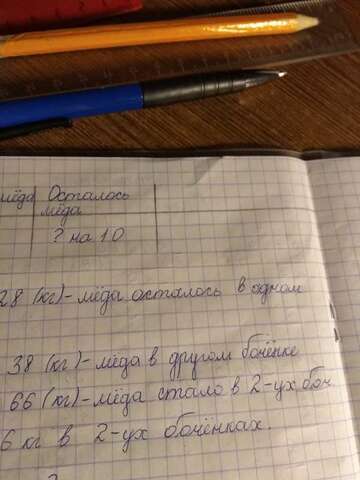 мёда Осталось
мёда
? на 10
28 (кг) - мёда осталось в одном
38 (кг) - мёда в другом бочёнке
66 (кг) - мёда стало в 2-ух боч
6 кг в 2-ух бочёнках.